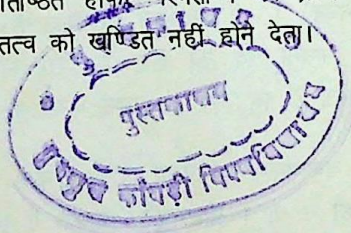 तत्व को खण्डित नहीं होने देता।
पुस्तकालय
गुरुकुल काँगड़ी विश्वविद्यालय